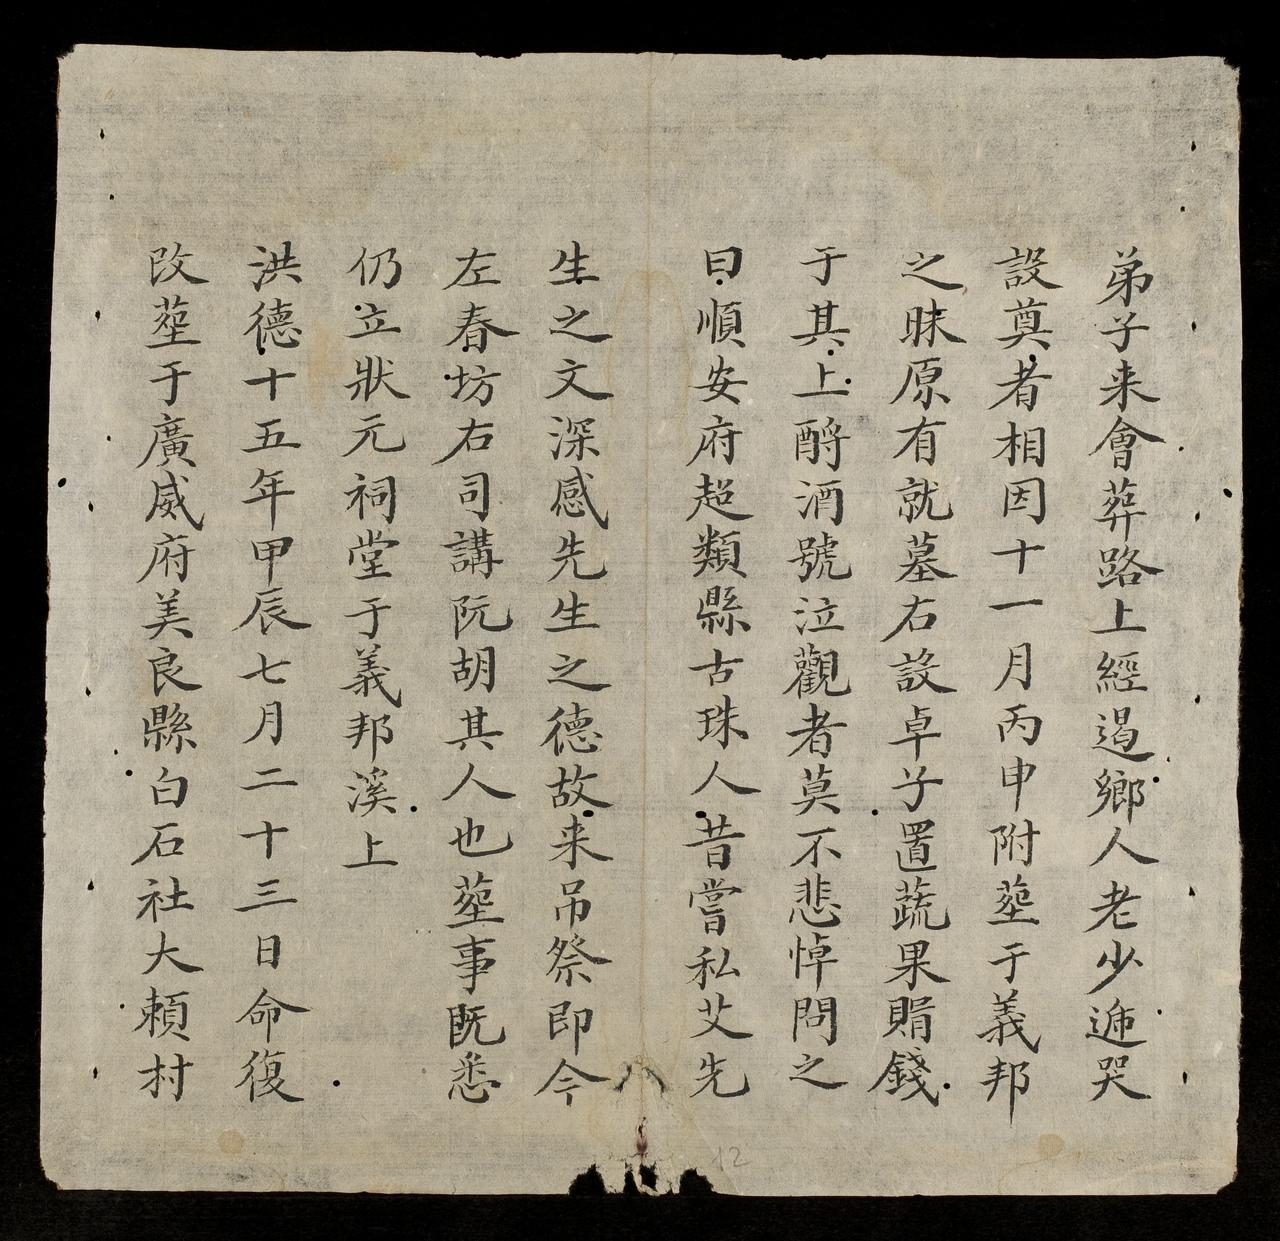 弟子来會葬路上經過鄉人老少逓哭
設奠者相因十一月丙申附塟于義邦
之昧原有就墓右設卓子置蔬果賻錢
于其上酹酒號泣觀者莫不悲悼問之
曰順安府超類縣古珠人昔嘗私艾先
生之文深感先生之德故来吊祭即今
左春坊右司講阮胡其人也塟事既悉
仍立狀元祠堂于義邦溪上
洪德十五年甲辰七月二十三日命復
改塟于廣威府美良縣白石社大頼村
12